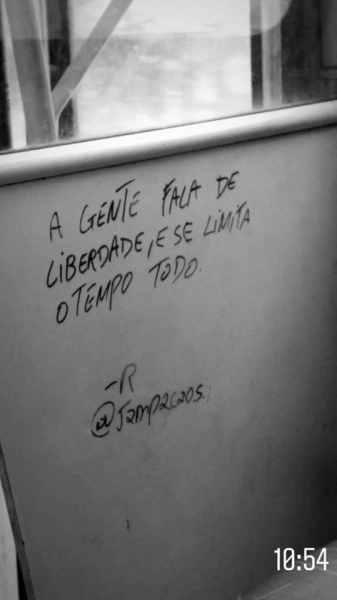 A GENTE FALA DE
LIBERDADE, E SE LIMITA
O TEMPO TODO.
-R
10:54